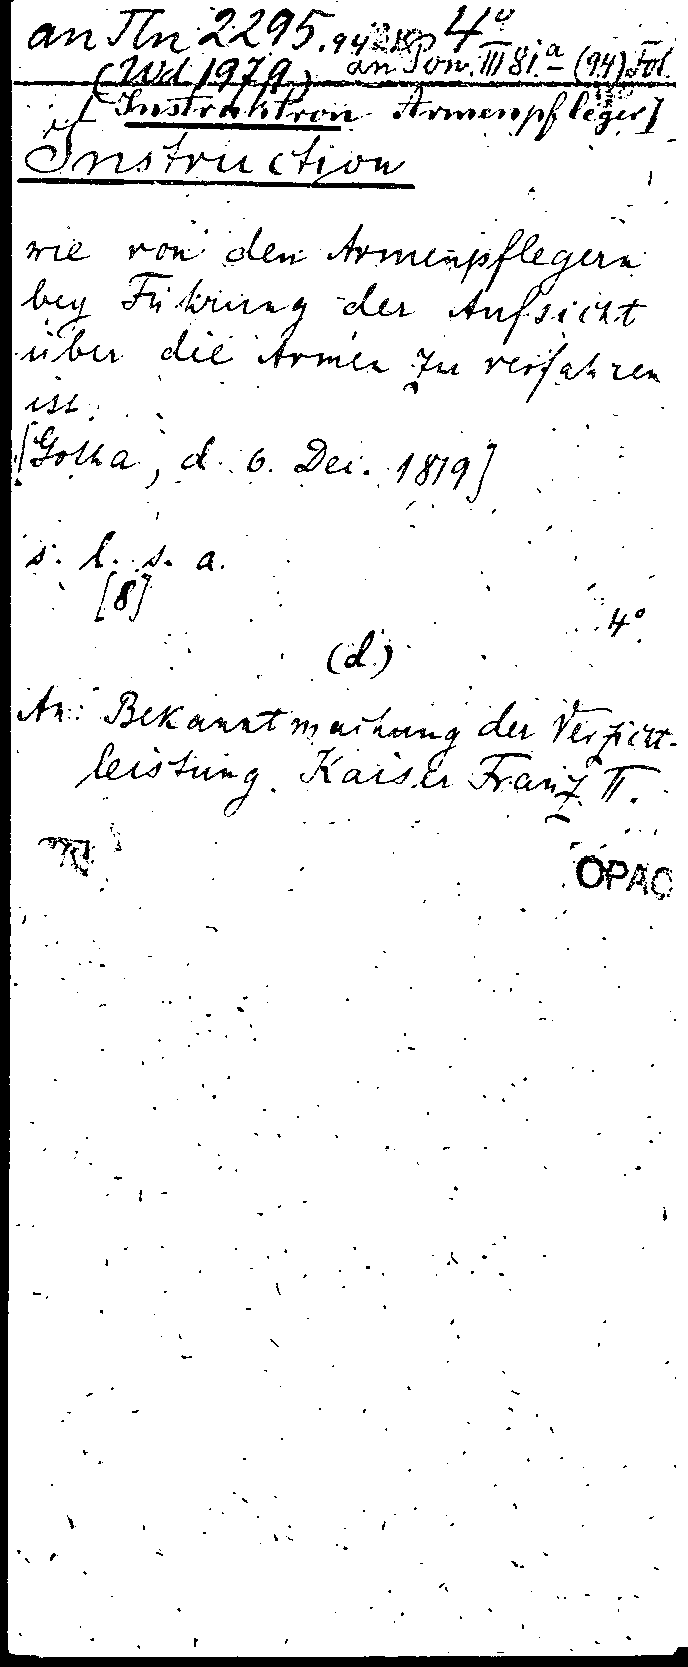 an Tln 2295. 94 4°
(Wd 1979) an Pon. III 81.a (94) Fol.
[Instruktion Armenpfleger]
Instruction
wie von den Armenpflegern
bey Führung der Aufsicht
über die Armen zu verfahren
ist.
[Gotha, d. 6. Dec. 1819]
s. l. s. a.
[8]
4°
(d.)
An: Bekanntmachung der Verzicht-
leistung. Kaiser Franz II.
OPAC